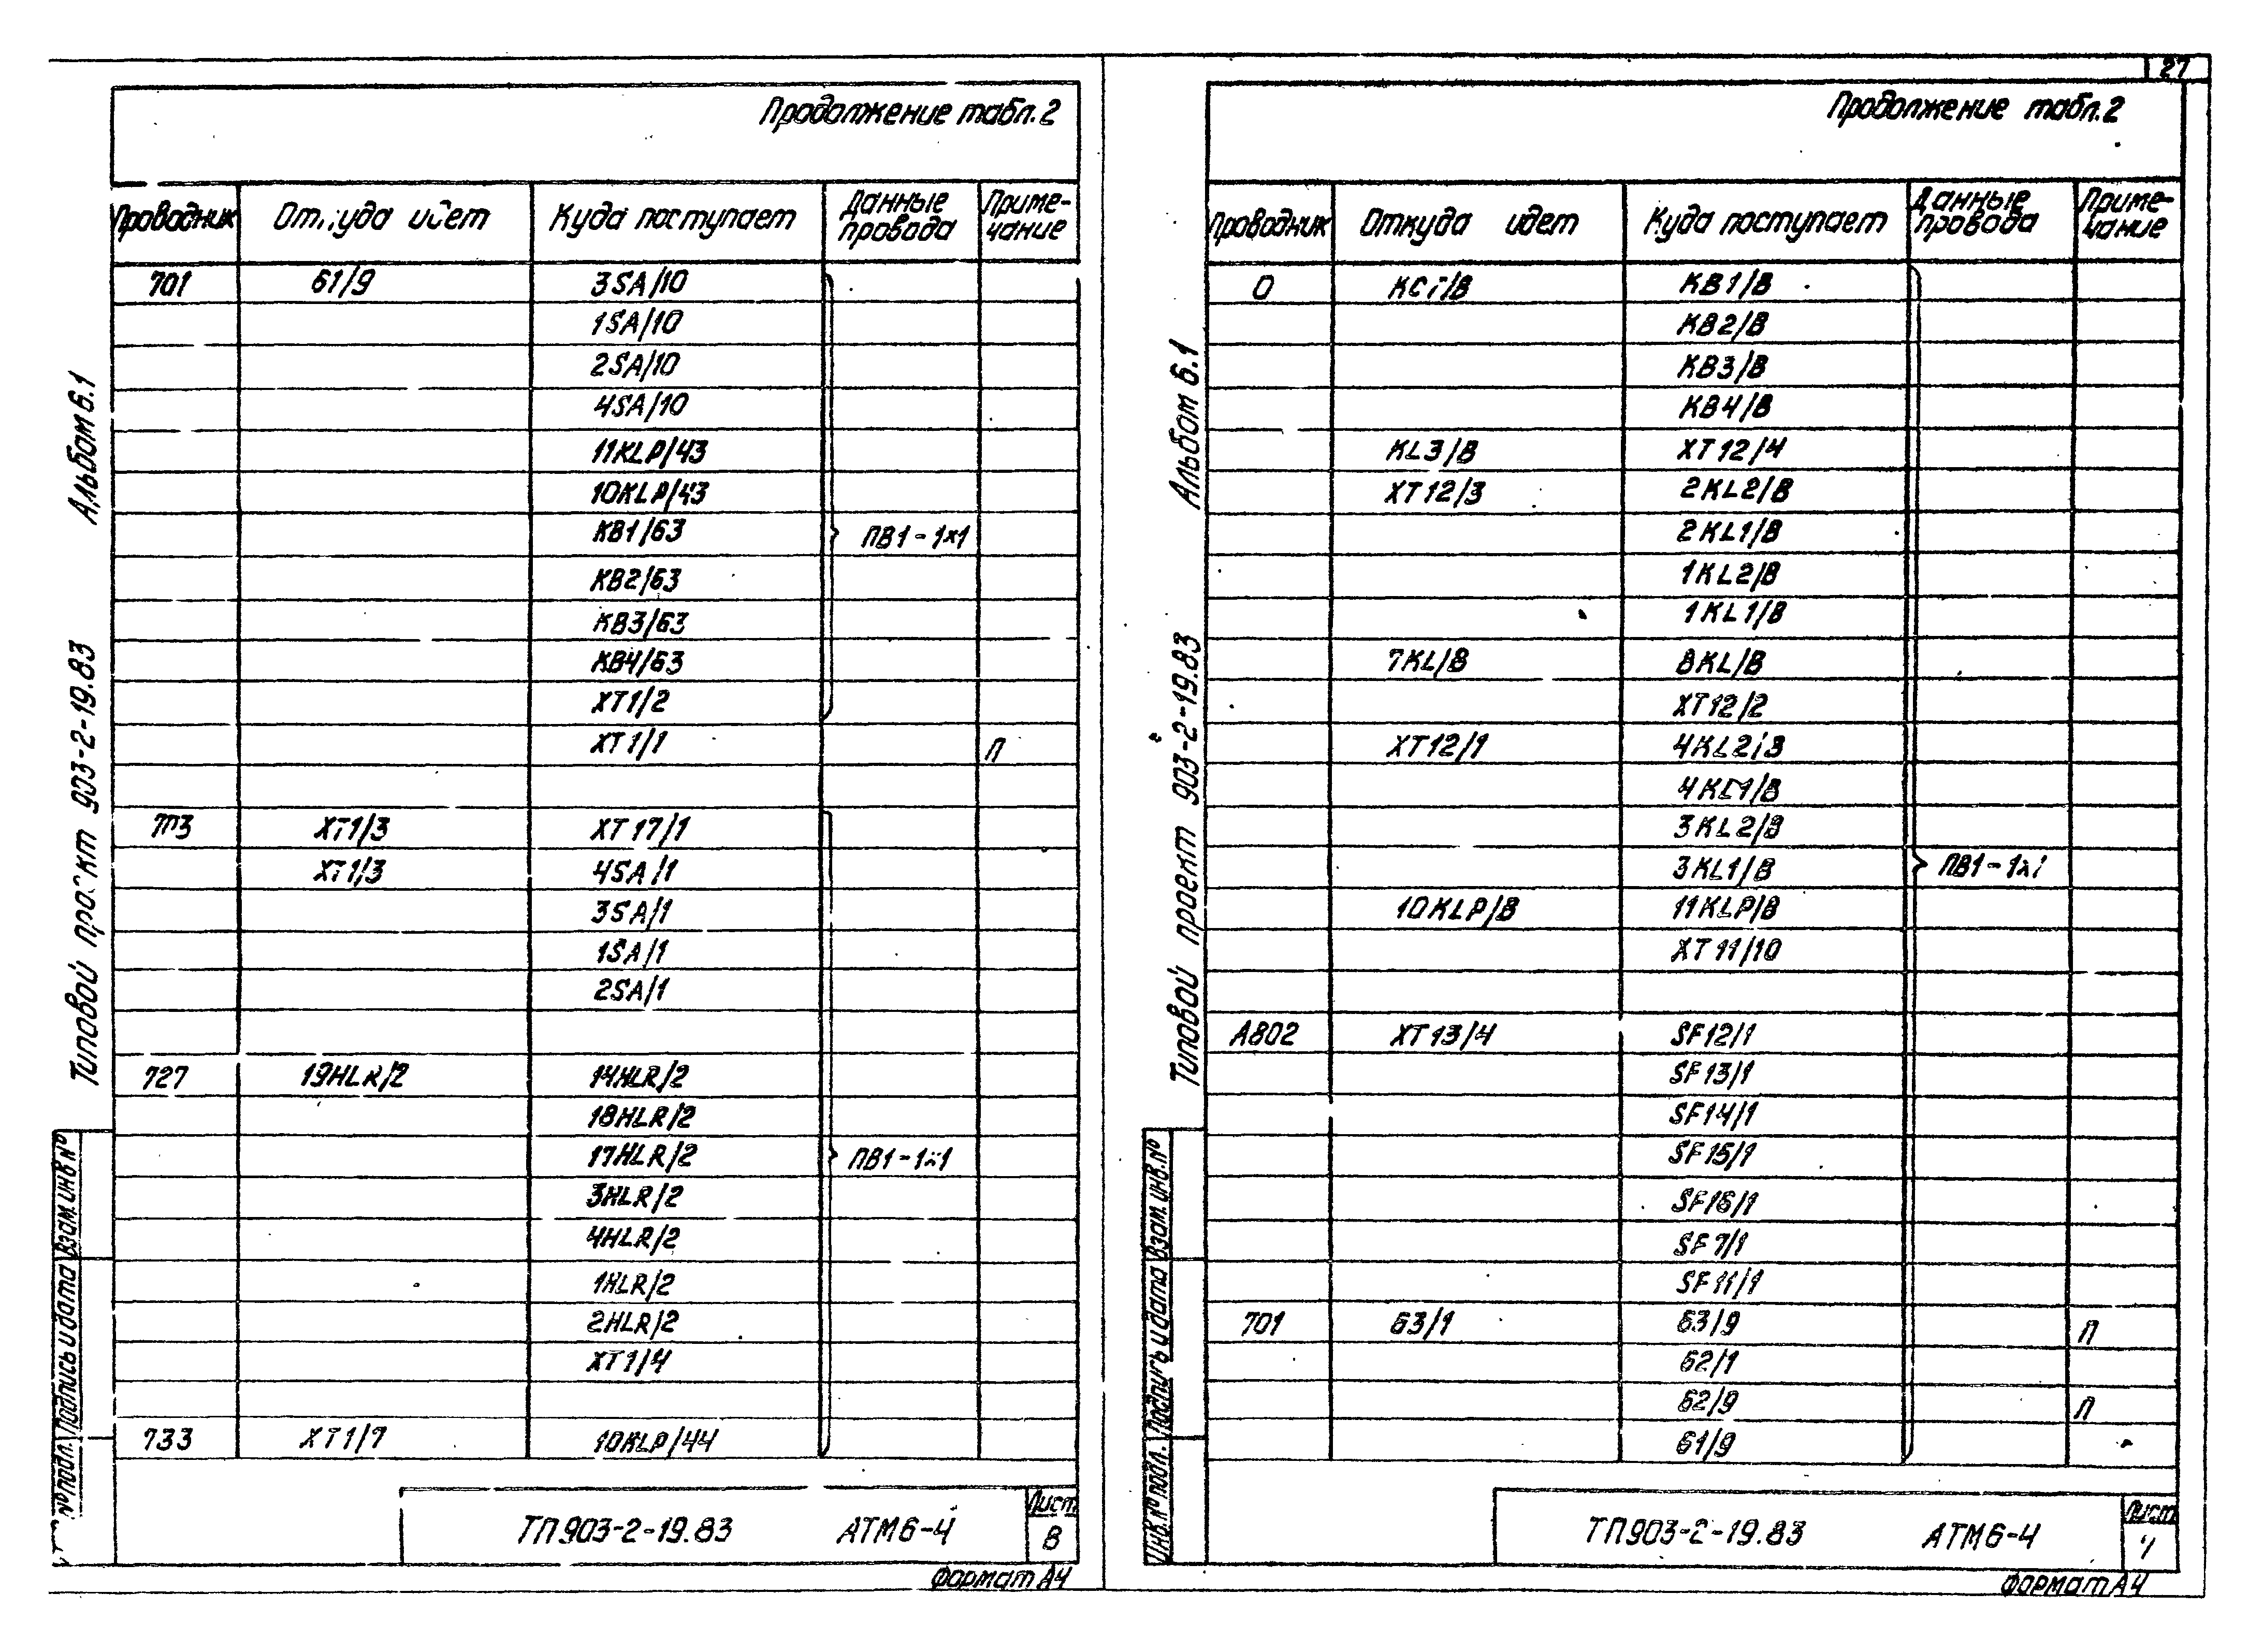 27
Продолжение табл.2
Проводник Откуда идет Куда поступает Данные провода Приме-чание
701 61/9 3SA/10
1SA/10
2SA/10
4SA/10
11KLP/43
10KLP/43
KB1/63 ПВ1-1х1
KB2/63
KB3/63
KB4/63
XT1/2
XT1/1 П
703 XT1/3 XT17/1
XT1/3 4SA/1
3SA/1
1SA/1
2SA/1
727 19HLR/2 14HLR/2
18HLR/2
17HLR/2 ПВ1-1х1
3HLR/2
4HLR/2
1HLR/2
2HLR/2
XT1/4
733 XT1/7 10KLP/44
Альбом 6.1
Типовой проект 903-2-19.83
Взам. инв. №
Подпись и дата
№ подл.
ТП903-2-19.83 АТМ6-4
Лист
8
Формат А4
Продолжение табл.2
Проводник Откуда идет Куда поступает Данные провода Приме-чание
0 KB1/B
KB2/B
KB3/B
KB4/B
KL3/B XT12/4
XT12/3 2KL2/B
2KL1/B
1KL2/B
1KL1/B
7KL/B 8KL/B
XT12/2
XT12/1
3KL2/B
3KL1/B ПВ1-1х1
10KLP/B 11KLP/B
XT11/10
A802 XT13/4 SF12/1
SF13/1
SF14/1
SF15/1
SF16/1
SF7/1
SF11/1
701 63/1 63/9 П
62/1
62/9 П
61/9
Альбом 6.1
Типовой проект 903-2-19.83
Взам. инв. №
Подпись и дата
Инв. № подл.
ТП903-2-19.83 АТМ6-4
Лист
Формат А4